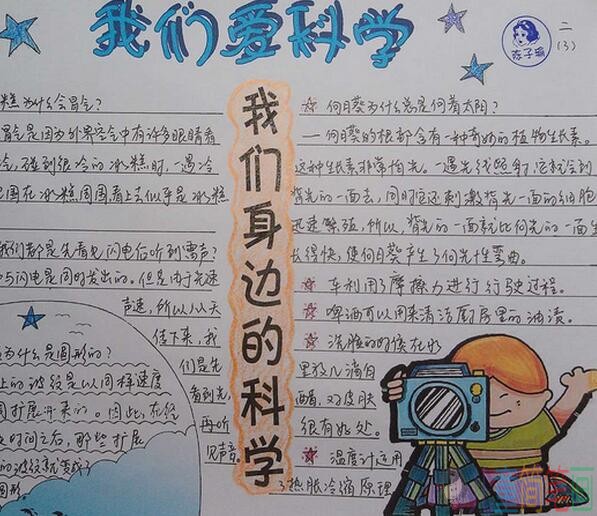 我们爱科学
二
(3)
糕为什么会冒气?
冒气是因为外界空气中有许多眼睛看
气,碰到很冷的冰糕时,一遇冷
围在冰糕周围,看上去似乎是冰糕
我们都是先看见闪电后听到雷声?
与闪电是同时发出的。但是由于光速
声速,所以从天
传下来,我
们是先
看到光,
再听
见声音。
为什么是圆形的?
上的波纹是以同样速度
扩展开来的。因此,在经
时间之后,那些扩展
的波纹就变成了
圆形。
我们身边的科学
向日葵为什么总是向着太阳?
—向日葵的根部含有一种奇妙的植物生长素。
这种生长素非常怕光。一遇光线照射,它就会到
背光的一面去,同时它还刺激背光一面的细胞
迅速繁殖,所以,背光的一面就比向光的一面生
长得快,使向日葵产生了向光性弯曲。
车利用了摩擦力进行行驶过程。
啤酒可以用来清洁厨房里的油渍。
洗脸的时候在水
里放几滴白
醋,对皮肤
很有好处。
温度计运用
了热胀冷缩原理